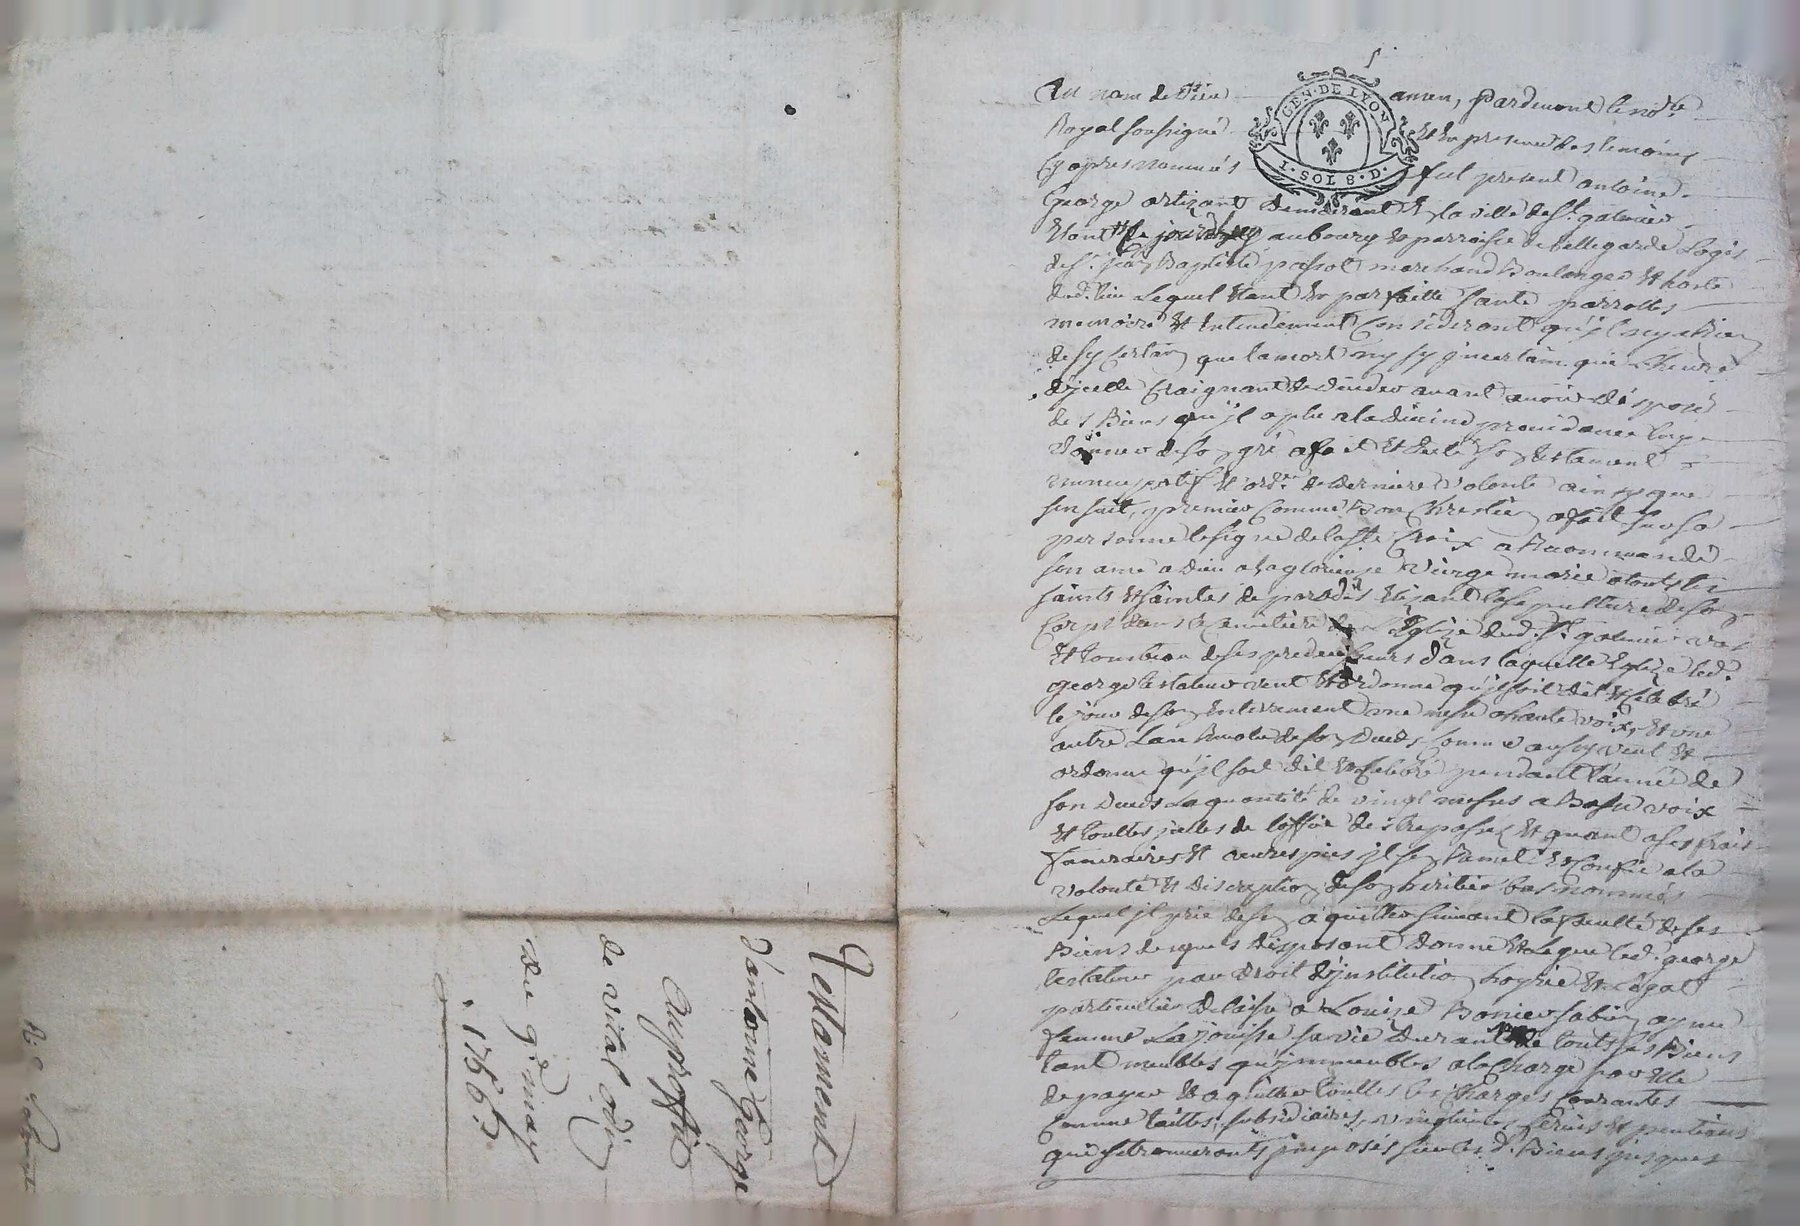 Testament
d'antoine George
au proffit
de vital odin
du 9.e may
1756
GEN · DE LYON
1 · SOL 8 · D ·
Au nom de Dieu amen, Pardevant le no.re
Royal soussigné Et En presence des temoins
Cy apres nommés fut present antoine
George artizant demeurant En la ville de St. galmier
Etant Ce jourdhuy au bourg Et parroisse de bellegarde Logis
de Sr. jean Baptiste passot marchand Boulanger Et hoste
dud. lieu Lequel Etant En parfaitte santé parrolles
memoire Et Entendement Considerant qu'jl ny a Rien
de sy certain que la mort ny sy jncertain que Lheure
djcelle Craignant de deceder avant avoir disposé
des Biens qu'jl a plu a la divine providance luy
donner de son gré a fait Et dicté son testament
nuncupatif Et ord.re de derniere volonté ainsy que
sen suit, premier comme Bon Chrestien a fait sur sa
personne le signe de la ste Croix a Recommandé
son ame a Dieu a la glorieuse Vierge marie a touts les
saints Et saintes de paradis Elizant la sepulture de son
Corps dans le Cemetiere de L'Eglize dud. St. galmier vas
Et tombeau de ses predecesseurs dans laquelle Eglize led.
george testateur veut Et ordonne qu'jl soit dit Et celebré
le jour de son Enterrement une messe a haute voix, Et une
autre Lan Revolu de son deceds comme aussy veut Et
ordonne qu'jl soit dit Et Celebré pendant l'année de
son deceds La quantité de vingt messes a Basse voix
Et touttes jcelles de loffice des trepassés Et quant a ses frais
funeraires Et œuvres pies jl sen Remet Et Confie a la
volonté Et discreption de son heritier bas nommé
Lequel jl prie de sen aquitter suivant la faculté de ses
Biens desquels disposant donne Et Legue led. george
testateur par droit djnstitution hoyrie Et Legat
particulier delaissé a Louize Bonier sa bien aymé
femme La jouisse sa vie durant de touts ses Biens
tant meubles qu'jmmeubles a la Charge par Elle
de payer Et aquitter touttes les Charges Courantes
Comme tailles, subsidiaires, vingtieme, servis Et pentions
qui se trouveronts jmposés sur lesd. Biens jusques